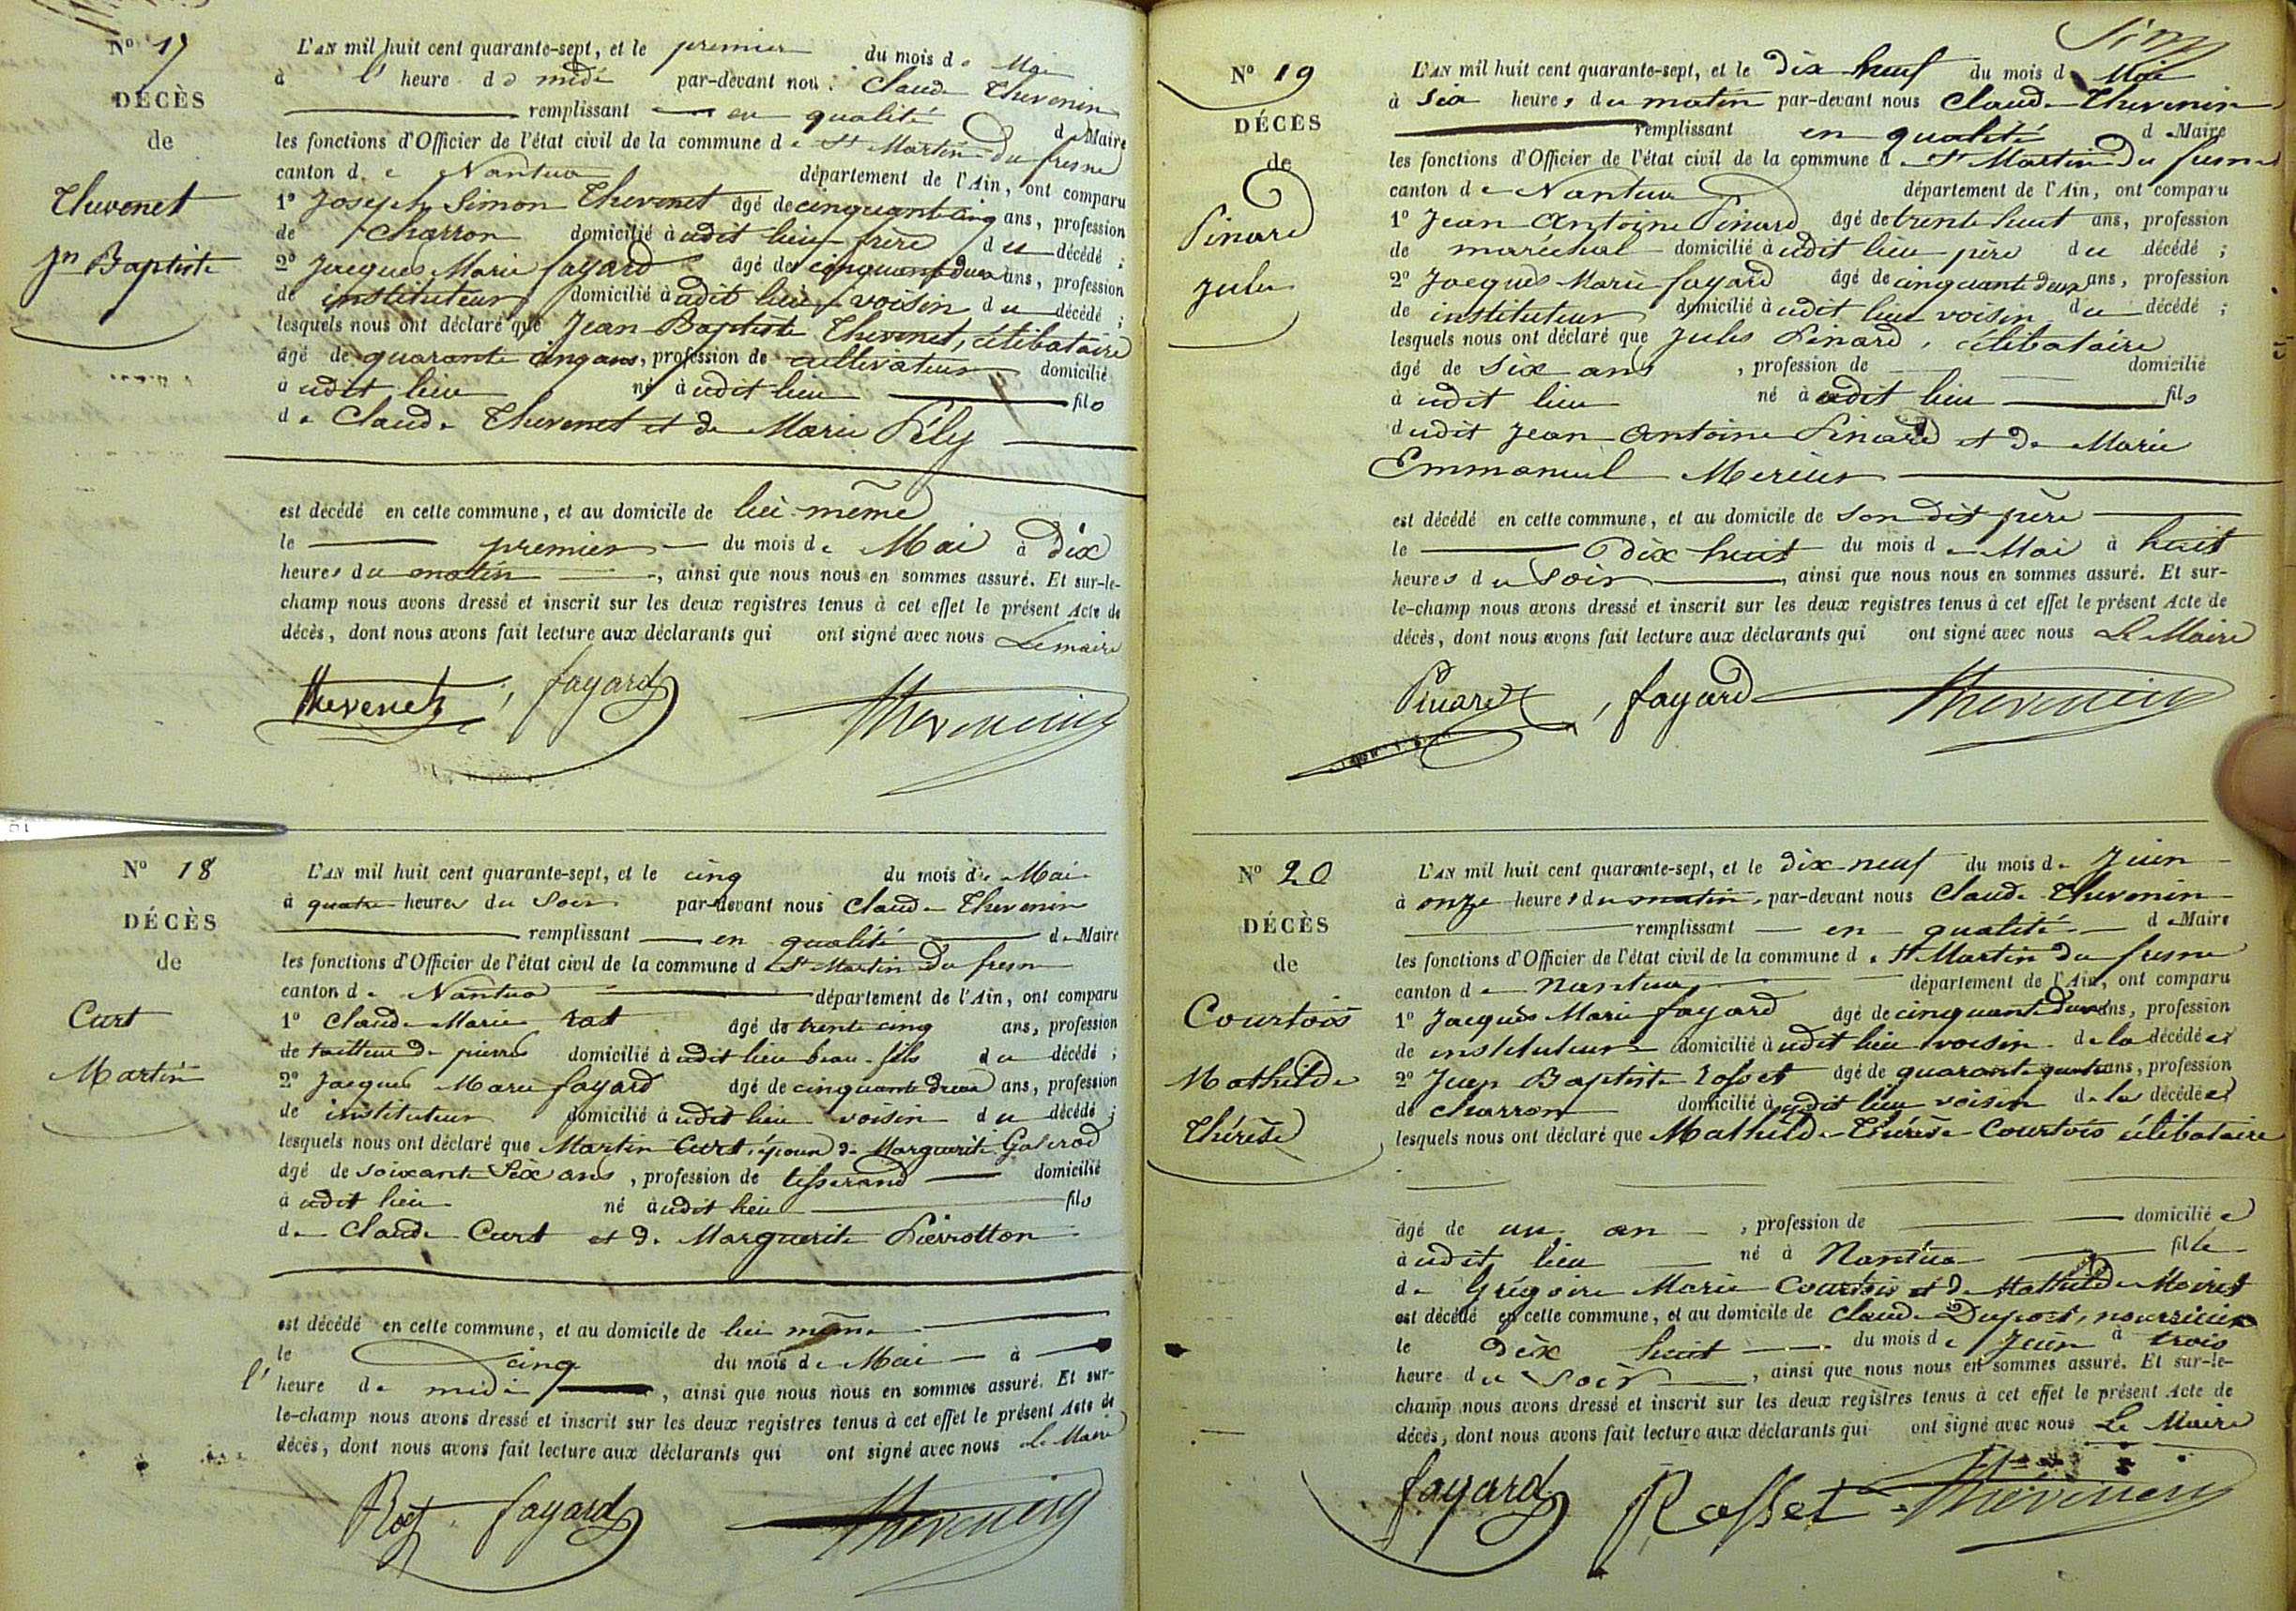 N° 17
DÉCÈS
de
Thevenet
Jn Baptiste
L'AN mil huit cent quarante-sept, et le premier du mois de Mai
à l'heure de midi par-devant nous Claude Thevenin
remplissant en qualité de Maire
les fonctions d'Officier de l'état civil de la commune de St Martin du fresne
canton de Nantua département de l'Ain, ont comparu
1° Joseph Simon Thevenet âgé de cinquante cinq ans, profession
de charron domicilié à udit lieu frère du décédé ;
2° Jacques Marie fayard âgé de cinquante deux ans, profession
de instituteur domicilié à udit lieu voisin du décédé ;
lesquels nous ont déclaré que Jean Baptiste Thevenet, célibataire
âgé de quarante cinq ans, profession de cultivateur domicilié
à udit lieu né à udit lieu fils
de Claude Thevenet et de Marie Pély
est décédé en cette commune, et au domicile de lui même
le premier du mois de Mai à dix
heures du matin, ainsi que nous nous en sommes assuré. Et sur-le-
champ nous avons dressé et inscrit sur les deux registres tenus à cet effet le présent Acte de
décès, dont nous avons fait lecture aux déclarants qui ont signé avec nous Le maire
Thevenet, fayard Thevenin
N° 18
DÉCÈS
de
Curt
Martin
L'AN mil huit cent quarante-sept, et le cinq du mois de Mai
à quatre heures du Soir par-devant nous Claude Thevenin
remplissant en qualité de Maire
les fonctions d'Officier de l'état civil de la commune de St Martin du fresne
canton de Nantua département de l'Ain, ont comparu
1° Claude Marie rat âgé de trente cinq ans, profession
de tailleur de pierres domicilié à udit lieu beau-fils du décédé ;
2° Jacques Marie fayard âgé de cinquante deux ans, profession
de instituteur domicilié à udit lieu voisin du décédé ;
lesquels nous ont déclaré que Martin Curt, époux de Marguerite
âgé de soixante Six ans, profession de tisserand domicilié
à udit lieu né à udit lieu fils
de Claude Curt et de Marguerite Pierrotton
est décédé en cette commune, et au domicile de lui même
le cinq du mois de Mai à
l'heure de midi, ainsi que nous nous en sommes assuré. Et sur-
le-champ nous avons dressé et inscrit sur les deux registres tenus à cet effet le présent Acte de
décès, dont nous avons fait lecture aux déclarants qui ont signé avec nous Le Maire
Rat fayard Thevenin
N° 19
DÉCÈS
de
Pinard
Jules
L'AN mil huit cent quarante-sept, et le dix neuf du mois de Mai
à Six heures du matin par-devant nous Claude Thevenin
remplissant en qualité de Maire
les fonctions d'Officier de l'état civil de la commune de St Martin du fresne
canton de Nantua département de l'Ain, ont comparu
1° Jean Antoine Pinard âgé de trente huit ans, profession
de maréchal domicilié à udit lieu père du décédé ;
2° Jacques Marie fayard âgé de cinquante deux ans, profession
de instituteur domicilié à udit lieu voisin du décédé ;
lesquels nous ont déclaré que Jules Pinard, célibataire
âgé de Six ans, profession de domicilié
à udit lieu né à udit lieu fils
dudit Jean Antoine Pinard et de Marie
Emmanuel
est décédé en cette commune, et au domicile de Son dit père
le Dix huit du mois de Mai à huit
heures du Soir ainsi que nous nous en sommes assuré. Et sur-
le-champ nous avons dressé et inscrit sur les deux registres tenus à cet effet le présent Acte de
décès, dont nous avons fait lecture aux déclarants qui ont signé avec nous Le Maire
Pinard, fayard Thevenin
N° 20
DÉCÈS
de
Courtois
Mathilde
Thérèse
L'AN mil huit cent quarante-sept, et le dix-neuf du mois de Juin
à onze heures du matin, par-devant nous Claude Thevenin
remplissant en qualité de Maire
les fonctions d'Officier de l'état civil de la commune de St Martin du fresne
canton de Nantua département de l'Ain, ont comparu
1° Jacques Marie fayard âgé de cinquante deux ans, profession
de instituteur domicilié à udit lieu voisin de la décédée
2° Baptiste rosset âgé de quarante ans, profession
de charron domicilié à udit lieu voisin de la décédée
lesquels nous ont déclaré que Mathilde Thérèse Courtois célibataire
âgé de un an, profession de domiciliée
à udit lieu né à Nantua fille
de Grégoire Marie Courtois et de Mathilde Moiret
est décédé en cette commune, et au domicile de Claude Dupost, nourricier
le dix huit du mois de Juin à trois
heure du Soir, ainsi que nous nous en sommes assuré. Et sur-le-
champ nous avons dressé et inscrit sur les deux registres tenus à cet effet le présent Acte de
décès, dont nous avons fait lecture aux déclarants qui ont signé avec nous Le Maire
fayard Rosset Thevenin